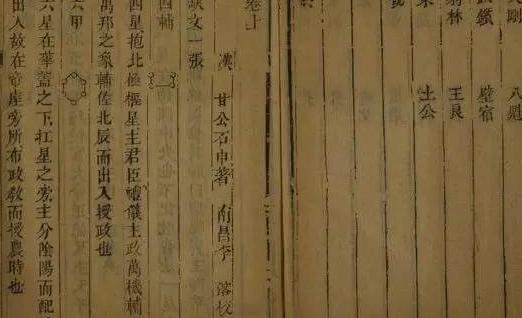 八魁
鑕 壁宿
羽林 王良
土公
卷上
漢 甘公石申著 南昌李 落校
缺文一張
四輔
四星抱北極樞星主君臣禮儀主政萬機輔
萬邦之象輔佐北辰而出入授政也
六甲
六星在華蓋之下扛星之旁主分陰陽而配
出入故在帝座旁所布政教而授農時也